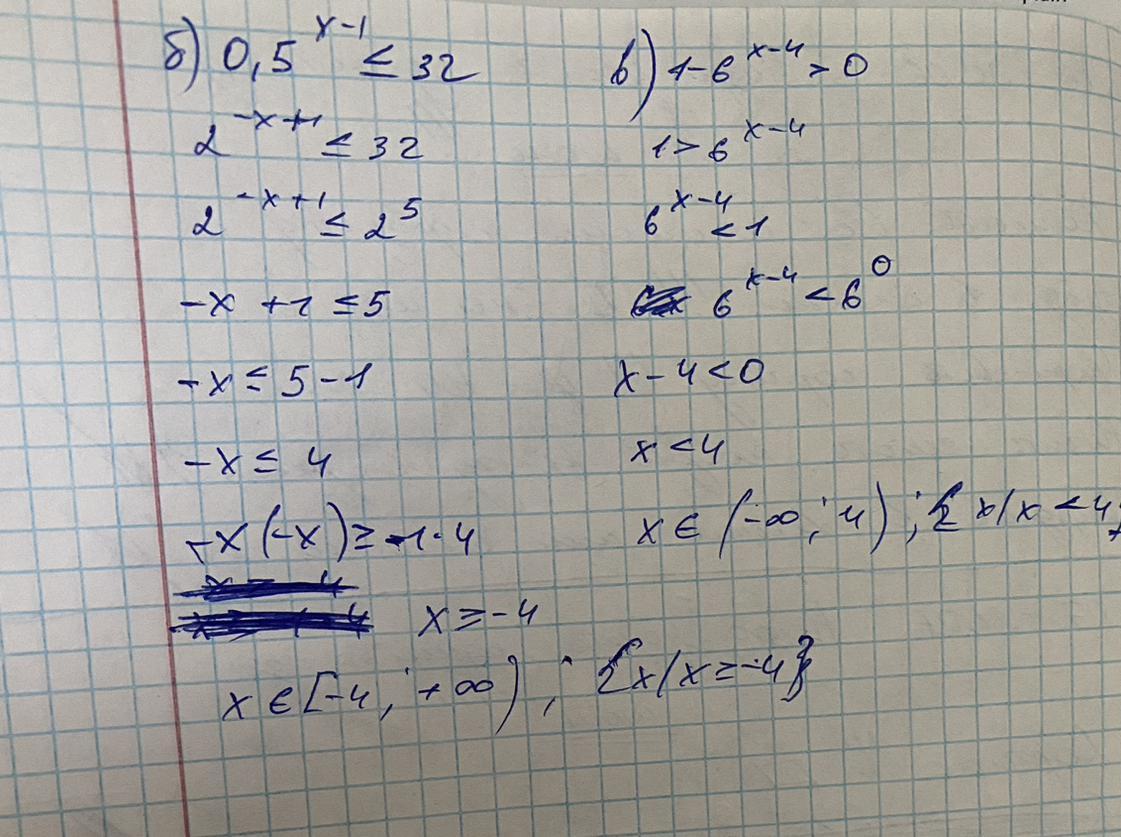 б) 0,5^(x-1) ≤ 32
2^(-x+1) ≤ 32
2^(-x+1) ≤ 2^5
-x +1 ≤ 5
-x ≤ 5 - 1
-x ≤ 4
-x (-x) ≥ -1 · 4
x ≥ -4
x ∈ [-4 ; +∞) ; {x/x ≥ -4}
в) 1 - 6^(x-4) > 0
1 > 6^(x-4)
6^(x-4) < 1
6^(x-4) < 6^0
x - 4 < 0
x < 4
x ∈ (-∞ ; 4) ; {x/x < 4}